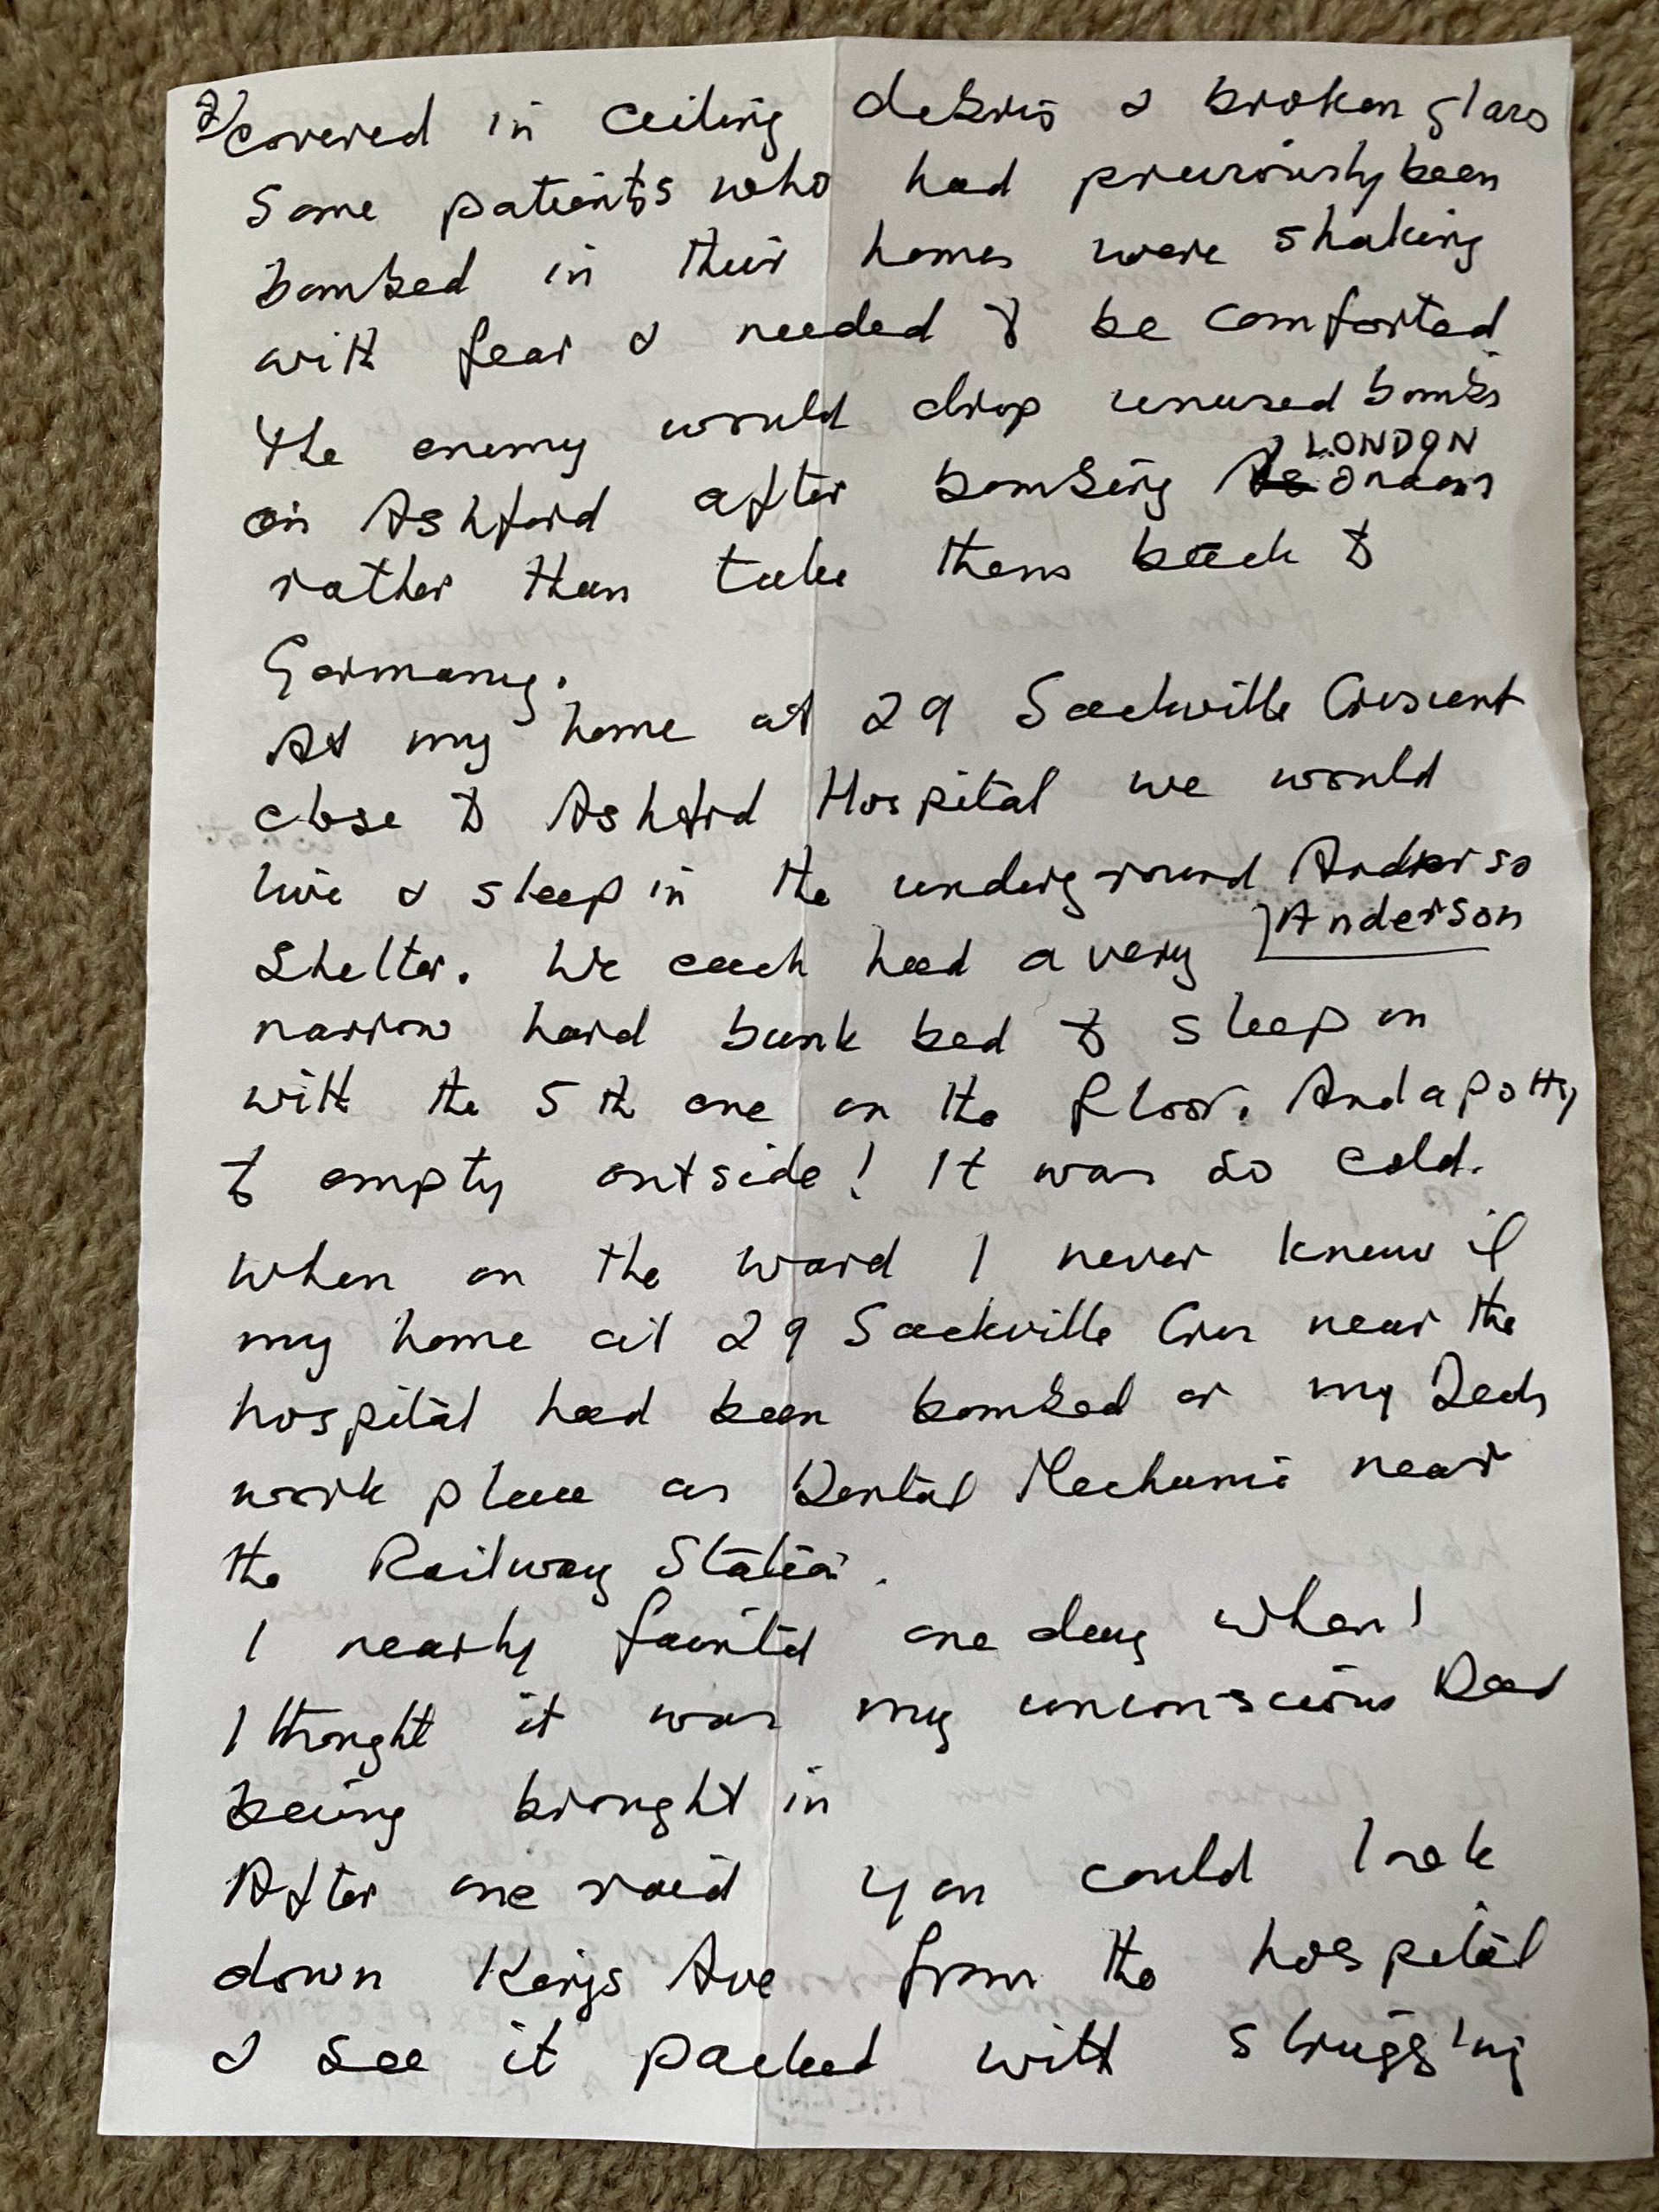 2/ covered in ceiling debris & broken glass
Some patients who had previously been
bombed in their homes were shaking
with fear & needed to be comforted
The enemy would drop unused bombs
LONDON
on Ashford after bombing
rather than take them back to
Germany.
At my home at 29 Sackville Crescent
close to Ashford Hospital we would
live & sleep in the underground Anderso
Anderson
Shelter. We each had a very
narrow hard bunk bed to sleep on
with the 5th one on the floor. And a potty
to empty outside! It was so cold.
When on the ward I never knew if
my home at 29 Sackville Cres near the
hospital had been bombed or my Dads
work place as Dental Mechanic near
the Railway Station.
I nearly fainted one day when I
I thought it was my unconscious Dad
being brought in
After one raid you could look
down Kings Ave from the hospital
& see it packed with